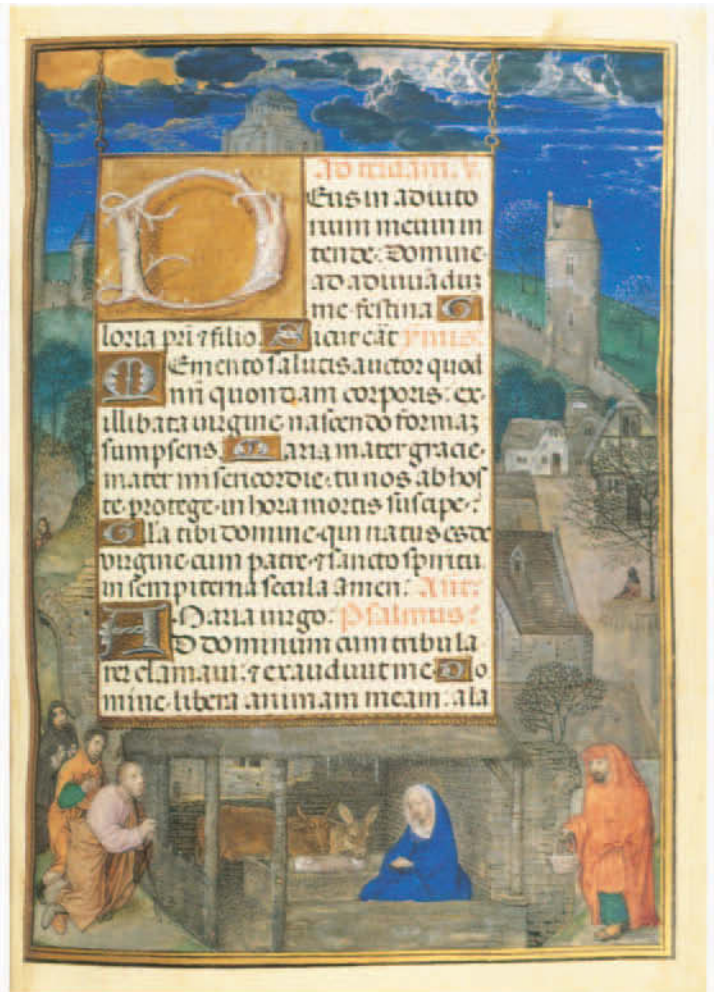 ad terciam. V.
Eus in adiuto
rium meum in
tende: Domine
ad adiuuāduz
me festina. G
loria pri ⁊ filio. Sicut eāt ymnus:
Memento salutis auctor quod
nrī quondam corporis: ex
illibata uirgine nascendo formaz
sumpseris. Maria mater gracie
mater misericordie, tu nos ab hos
te protege in hora mortis suscipe:
Gla tibi domine qui natus es de
uirgine cum patre ⁊ sancto spiritu
in sempiterna secula amen: Ant:
Maria uirgo: Psalmus:
AD dominum cum tribula
rer clamaui: ⁊ exaudiuit me. Do
mine libera animam meam: a la